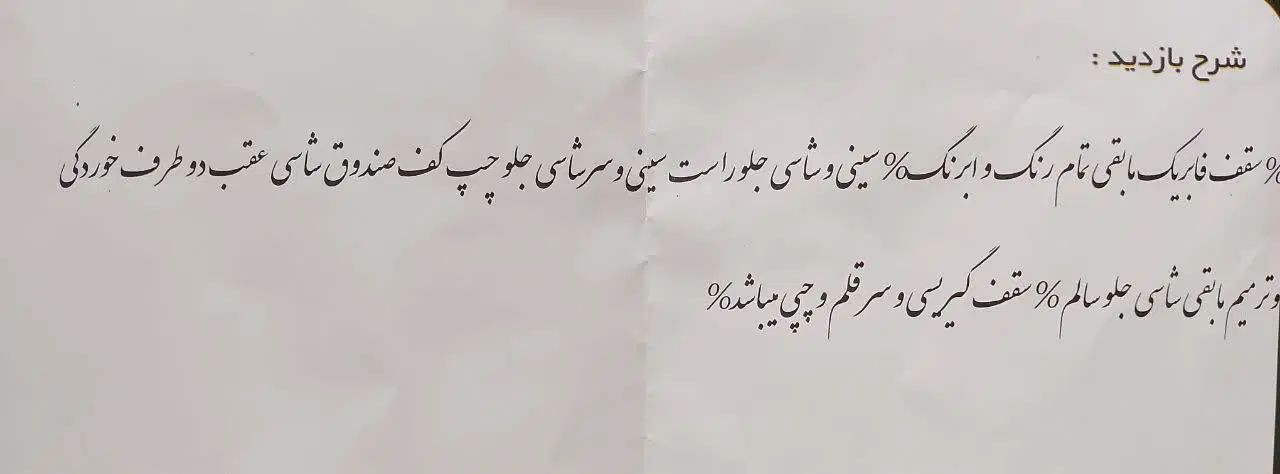 شرح بازدید :
% سقف فابریک مابقی تمام رنگ و ابرنگ% سینی و شاسی جلو راست سینی و سرشاسی جلو چپ کف صندوق شاسی عقب دو طرف خوردگی
وترمیم مابقی شاسی جلو سالم % سقف گیریسی و سر قلم و چپی میباشد%